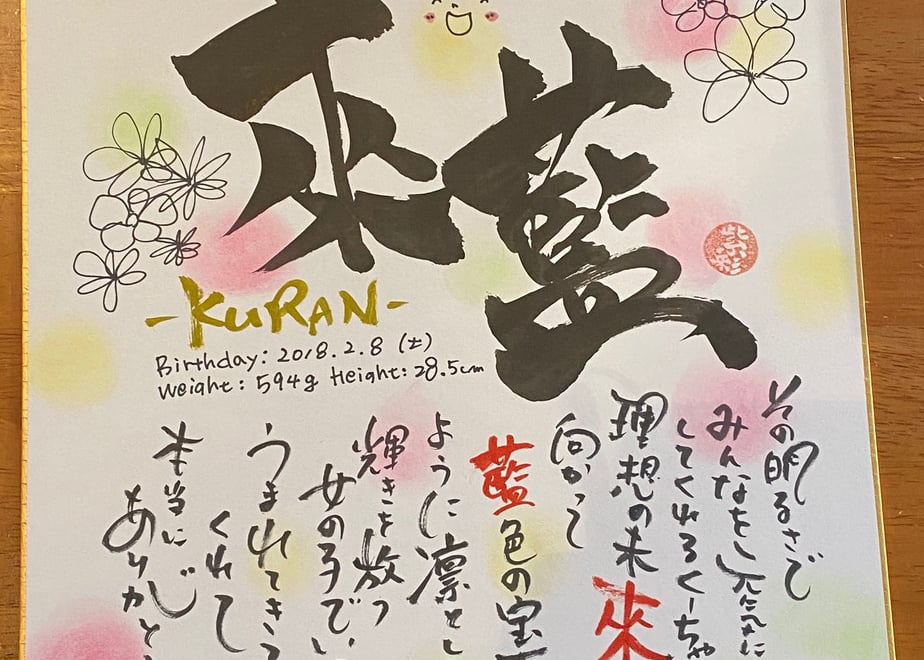 來藍
-KURAN-
Birthday: 2018.2.8 (土)
Weight: 594g Height: 28.5cm
その明るさで
みんなを元気に
してくれるくーちゃ
理想の未來
向かって
藍色の宝
ように凛とし
輝きを放つ
女の子でい
うまれてきて
くれて
本当に
ありがと